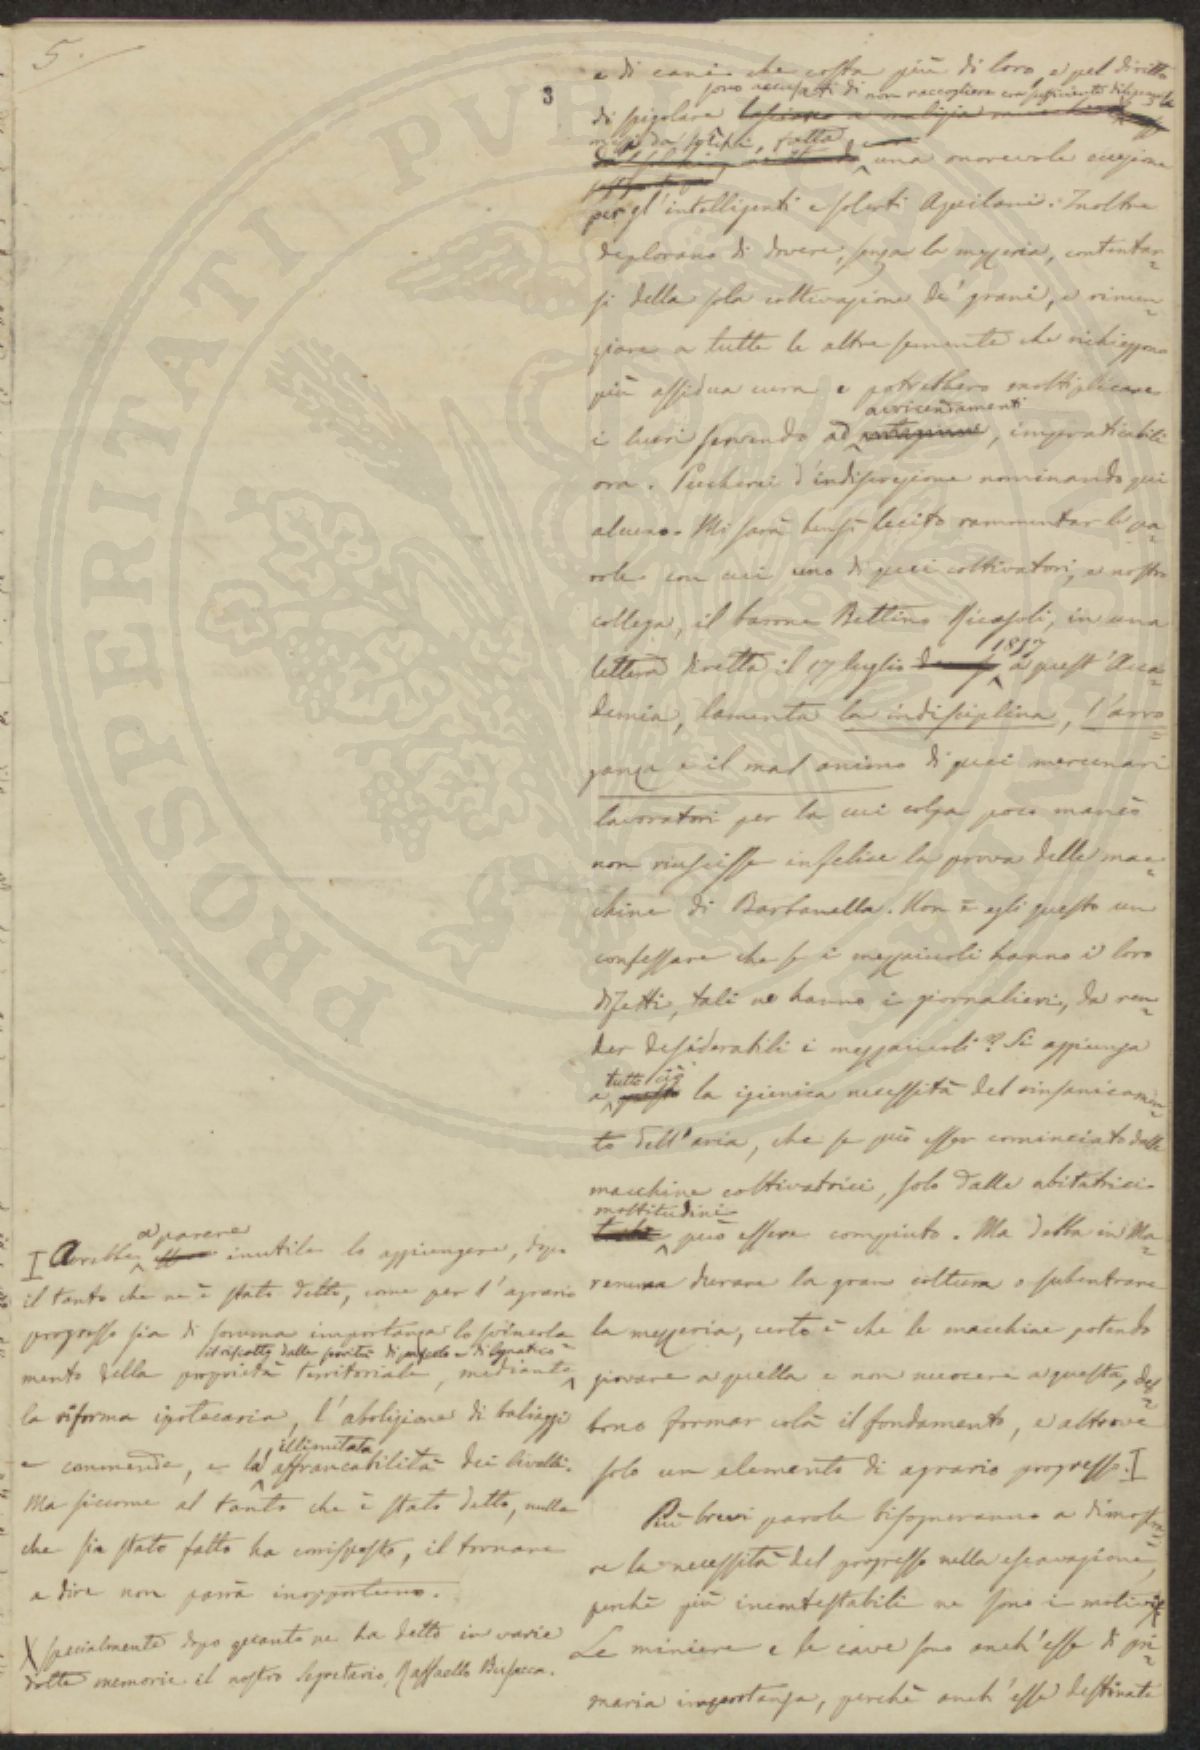 5.
3
e di cani che costa più di loro, e pel diritto
sono accusati di non raccogliere con sufficiente diligenza le
di spigolare
da' , fatta una onorevole eccezione
per gl'intelligenti e solerti Aquilani. Inoltre
deplorano di dovere, senza la mezzeria, contentar=
si della sola coltivazione de' grani, e rinun=
ziare a tutte le altre semente che richieggono
più assidua cura e potrebbero moltiplicare
avvicendamenti
i lucri servendo ad , impraticabili
ora. Peccherei d'indiscrezione nominando qui
alcuno. Mi sarà bensì lecito rammentar le pa=
role con cui uno di quei coltivatori, e nostro
collega, il barone Bettino Ricasoli, in una
1857
lettera diretta il 17 luglio a quest'Acca=
demia, lamenta la indisciplina, l'arro=
ganza e il mal animo di quei mercenari
lavoratori per la cui colpa poco mancò
non riuscisse infelice la prova delle mac=
chine di Barbanella. Non è egli questo un
confessare che se i mezzaiuoli hanno i loro
difetti, tali ne hanno i giornalieri, da ren=
der desiderabili i mezzaiuoli? Si aggiunga
tutto ciò
a questo la igienica necessità del rinsanicamen=
to dell'aria, che se può esser cominciato dalle
macchine coltivatrici, solo dalle abitatrici
moltitudini
può essere compiuto. Ma debba in Ma=
remma durare la gran coltura o subentrare
la mezzeria, certo è che le macchine potendo
giovare a quella e non nuocere a questa, deb=
bono formar colà il fondamento, e altrove
solo un elemento di agrario progresso. I
Più brevi parole bisogneranno a dimostra=
re la necessità del progresso nella escavazione,
perchè più incontestabili ne sono i motivi X
Le miniere e le cave sono anch'esse di pri=
maria importanza, perchè anch'esse destinate
a parere
I Avrebbe inutile lo aggiungere, dopo
il tanto che ne è stato detto, come per l'agrario
progresso sia di somma importanza lo svincola
il riscatto dalle servitù di pascolo e di legnatico
mento della proprietà territoriale, mediante
la riforma ipotecaria, l'abolizione di baliaggi
illimitata
e commende, e la affrancabilità dei livelli.
Ma siccome al tanto che è stato detto, nulla
che sia stato fatto ha corrisposto, il tornare
a dire non parrà inopportuno.
X specialmente dopo quanto ne ha detto in varie
dotte memorie il nostro Segretario, Raffaello Busacca.